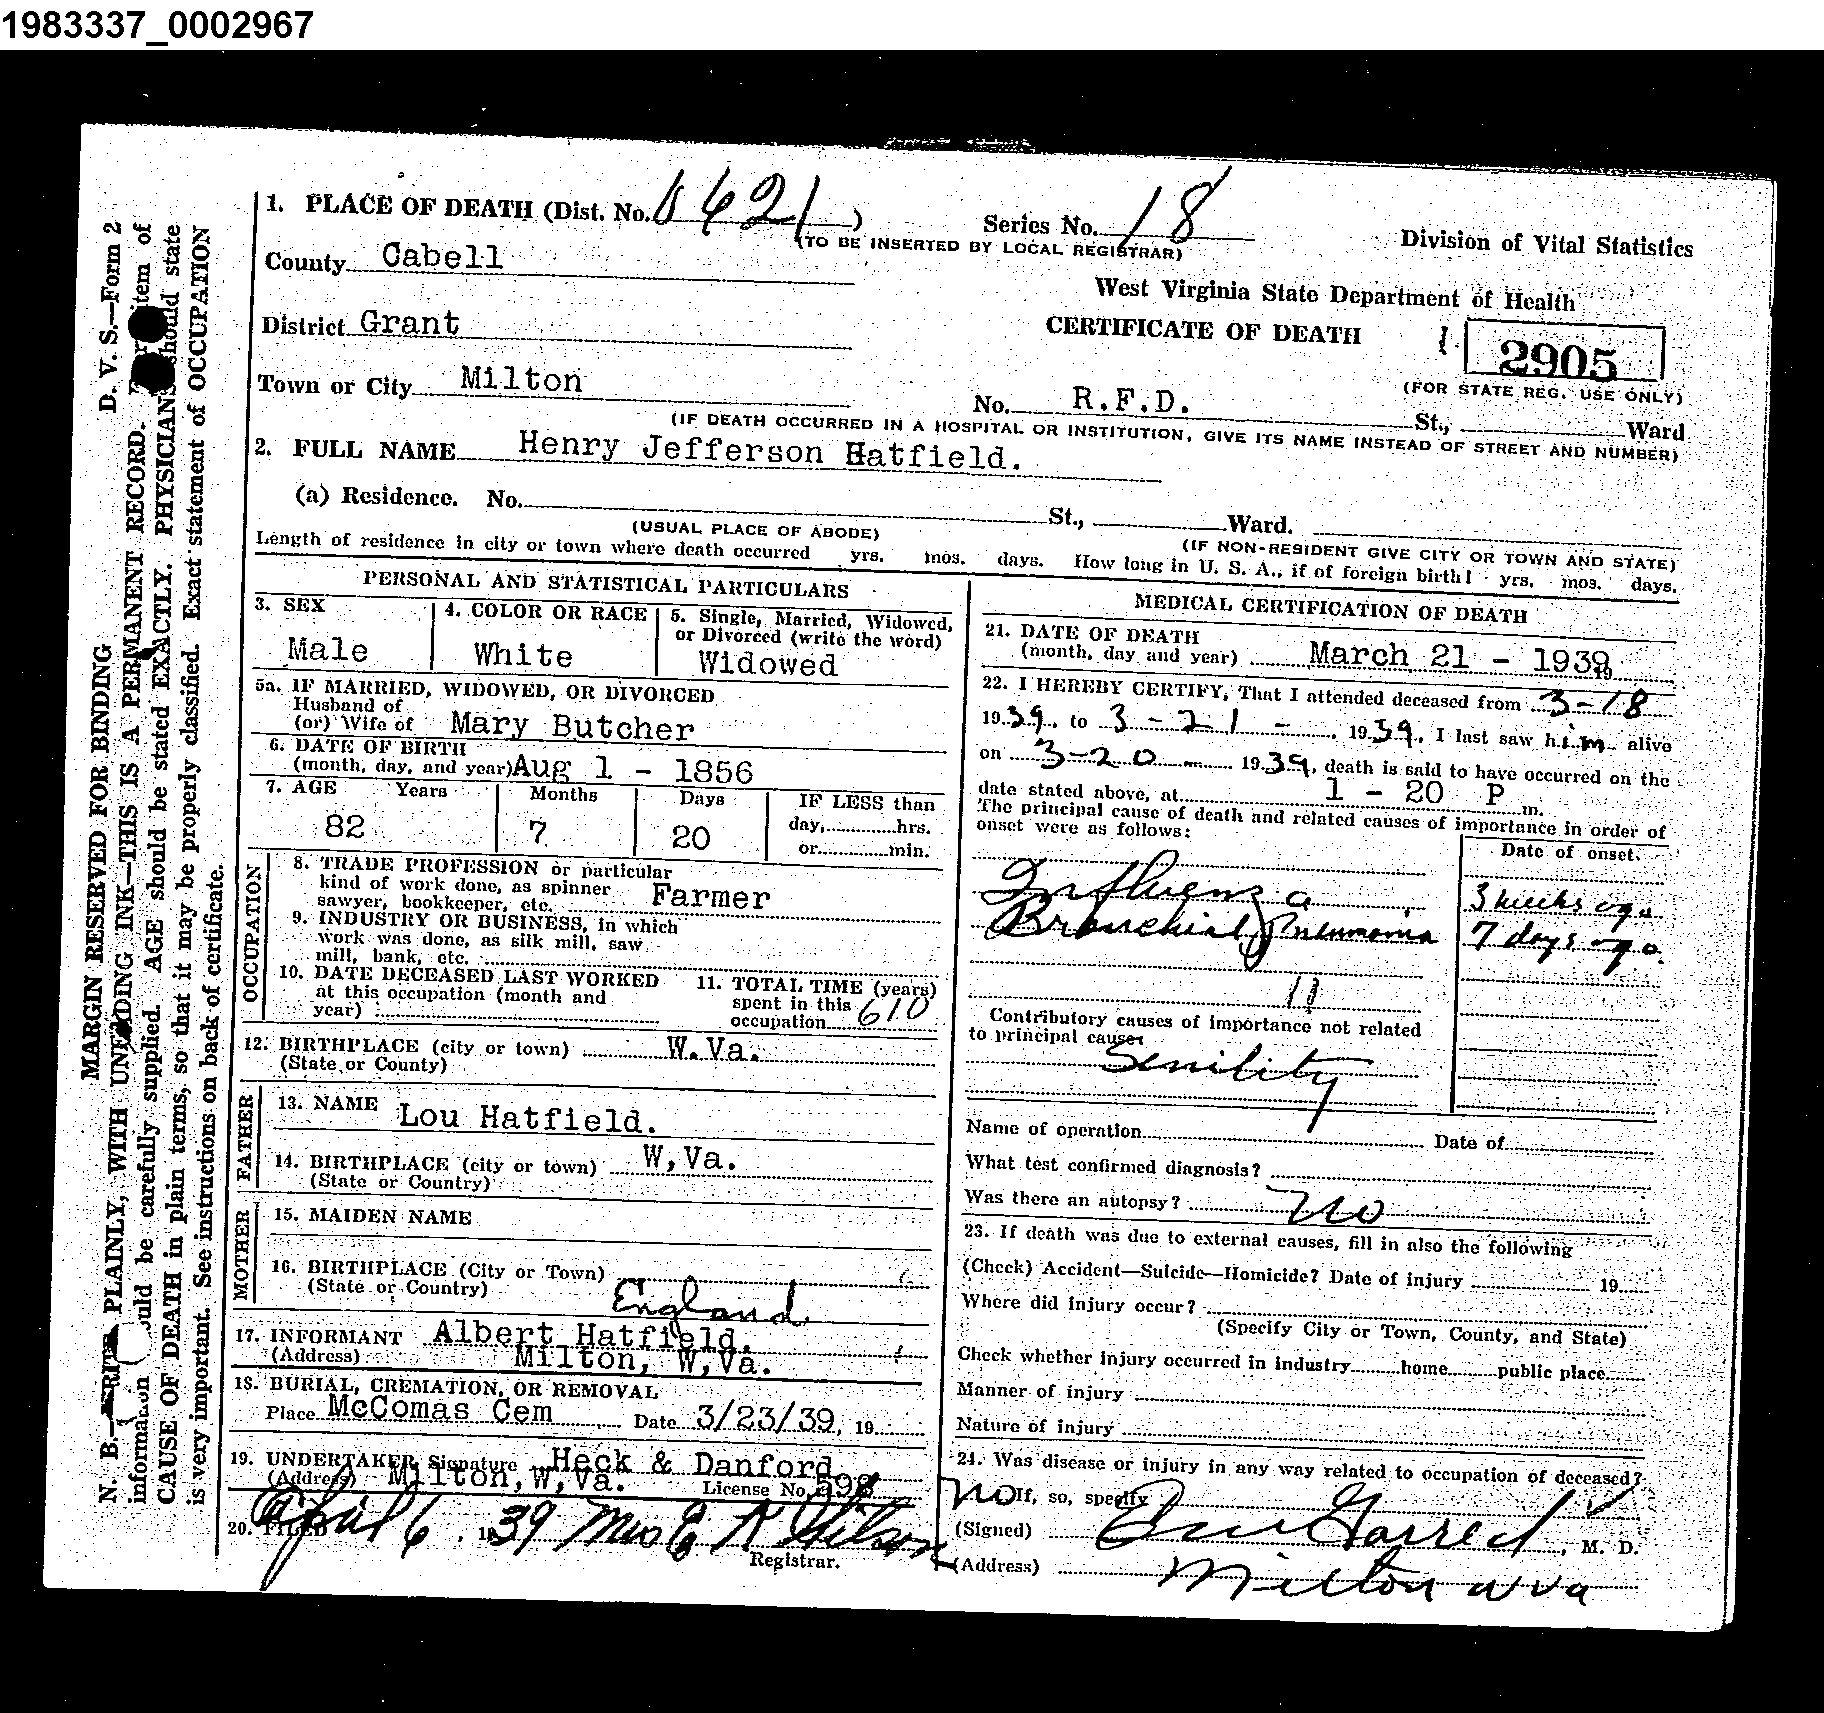 1983337_0002967
1. PLACE OF DEATH (Dist. No. 0621)
Series No. 18
(TO BE INSERTED BY LOCAL REGISTRAR)
Division of Vital Statistics
County Cabell
West Virginia State Department of Health
District Grant
CERTIFICATE OF DEATH
2905
(FOR STATE REG. USE ONLY)
Town or City Milton
No. R.F.D. St., Ward
(IF DEATH OCCURRED IN A HOSPITAL OR INSTITUTION, GIVE ITS NAME INSTEAD OF STREET AND NUMBER)
2. FULL NAME Henry Jefferson Hatfield.
(a) Residence. No. St., Ward.
(USUAL PLACE OF ABODE) (IF NON-RESIDENT GIVE CITY OR TOWN AND STATE)
Length of residence in city or town where death occurred yrs. mos. days. How long in U. S. A., if of foreign birth? yrs. mos. days.
PERSONAL AND STATISTICAL PARTICULARS
3. SEX
Male
4. COLOR OR RACE
White
5. Single, Married, Widowed,
or Divorced (write the word)
Widowed
5a. IF MARRIED, WIDOWED, OR DIVORCED
Husband of
(or) Wife of Mary Butcher
6. DATE OF BIRTH
(month, day, and year) Aug 1 - 1856
7. AGE Years Months Days IF LESS than
82 7 20 day, hrs.
or min.
OCCUPATION
8. TRADE PROFESSION or particular
kind of work done, as spinner
sawyer, bookkeeper, etc. Farmer
9. INDUSTRY OR BUSINESS, in which
work was done, as silk mill, saw
mill, bank, etc.
10. DATE DECEASED LAST WORKED
at this occupation (month and
year)
11. TOTAL TIME (years)
spent in this
occupation 610
12. BIRTHPLACE (city or town) W.Va.
(State or County)
FATHER
13. NAME Lou Hatfield.
14. BIRTHPLACE (city or town) W,Va.
(State or Country)
MOTHER
15. MAIDEN NAME
16. BIRTHPLACE (City or Town)
(State or Country) England
17. INFORMANT Albert Hatfield.
(Address) Milton, W,Va.
18. BURIAL, CREMATION, OR REMOVAL
Place McComas Cem Date 3/23/39, 19
19. UNDERTAKER Signature Heck & Danford
(Address) Milton,W,Va. License No.
20. FILED April 6, 1939 Mrs E R Gilson
Registrar.
MEDICAL CERTIFICATION OF DEATH
21. DATE OF DEATH
(month, day and year) March 21 - 1939
22. I HEREBY CERTIFY, That I attended deceased from 3-18
1939, to 3-21-, 1939, I last saw him alive
on 3-20-1939, death is said to have occurred on the
date stated above, at 1 - 20 P m.
The principal cause of death and related causes of importance in order of
onset were as follows:
Date of onset.
Influenza 3 weeks ago
Bronchial Pneumonia 7 days ago.
11
Contributory causes of importance not related
to principal cause:
Senility
Name of operation Date of
What test confirmed diagnosis?
Was there an autopsy? No
23. If death was due to external causes, fill in also the following
(Check) Accident—Suicide—Homicide? Date of injury 19
Where did injury occur?
(Specify City or Town, County, and State)
Check whether injury occurred in industry home public place
Manner of injury
Nature of injury
24. Was disease or injury in any way related to occupation of deceased?
No If, so, specify
(Signed) Garred, M. D.
(Address) Milton W Va
D. V. S.—Form 2
MARGIN RESERVED FOR BINDING
N. B.—WRITE PLAINLY, WITH UNFADING INK—THIS IS A PERMANENT RECORD. Every item of
information should be carefully supplied. AGE should be stated EXACTLY. PHYSICIANS should state
CAUSE OF DEATH in plain terms, so that it may be properly classified. Exact statement of OCCUPATION
is very important. See instructions on back of certificate.